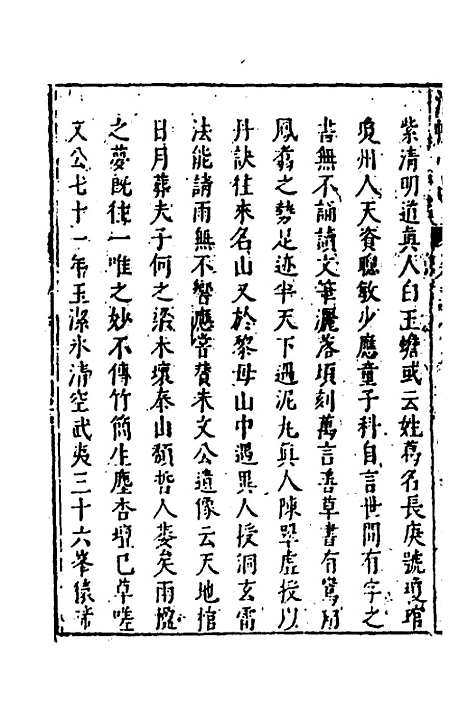 紫清明道真人白玉蟾或云姓葛名長庚號瓊琯
瓊州人天資聰敏少應童子科自言世間有字之
書無不誦讀文筆灑落頃刻萬言善草書有鸞翔
鳳翥之勢足迹半天下遇泥丸真人陳翠虛授以
丹訣往來名山又於黎母山中遇異人授洞玄雷
法能諸雨無不響應甞賛朱文公遺像云天地棺
日月葬夫子何之梁木壞泰山頽哲人萎矣兩楹
之夢既往一唯之妙不傳竹簡生塵杏壇已草嗟
文公七十一年玉潔氷清空武夷三十六峯猿啼